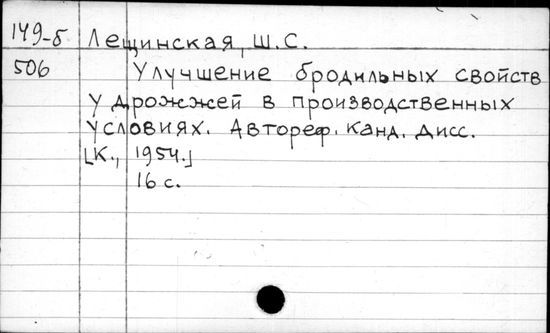 149-б Лещинская, Ш.С.
506 Улучшение бродильных свойств
у дрожжей в производственных
условиях. Автореф. канд. дисс.
[К., 1954.]
16 с.